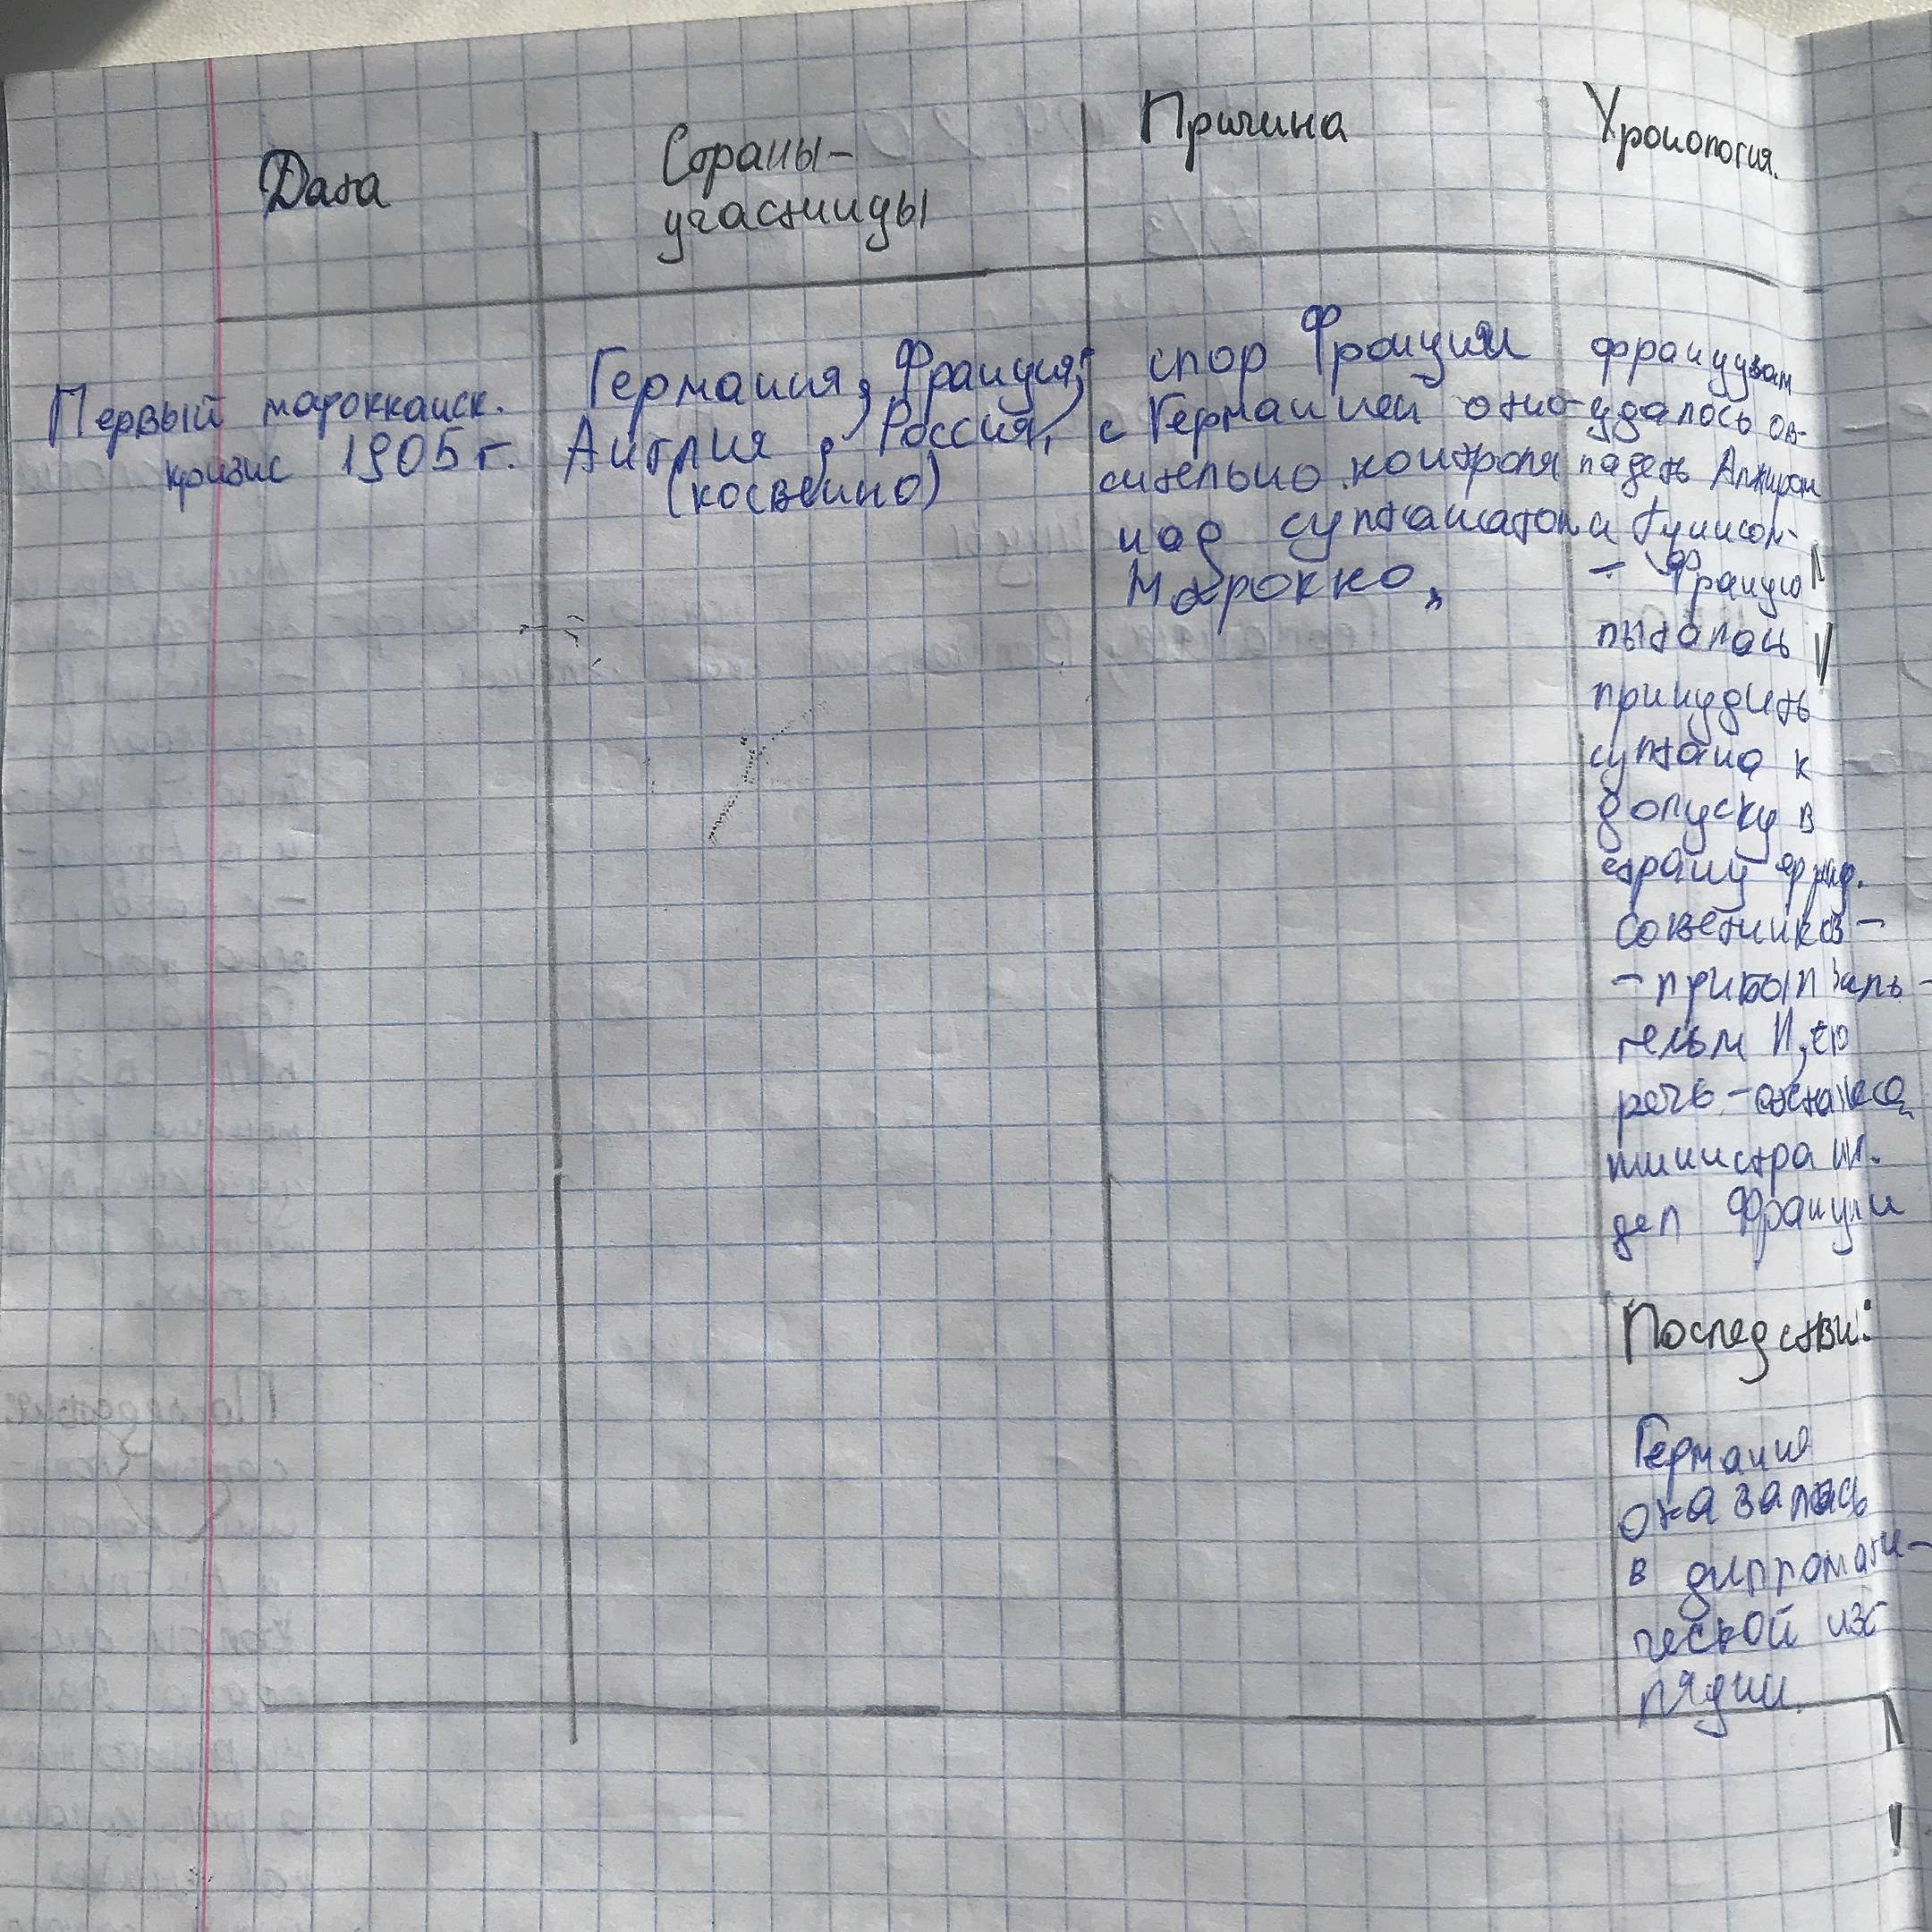 Дата
Страны-
участницы
Причина
Хронология.
Первый марокканск.
кризис 1905 г.
Германия, Франция,
Англия, Россия,
(косвенно)
спор Франции
с Германией отно-
сительно контроля
над султанатом
Марокко.
французам
удалось ов-
ладеть Алжиром
и Тунисом-
- Франция
пыталась
принудить
султана к
допуску в
страну франц.
советников-
- прибыл Виль-
гельм II, его
речь - отставка
министра ин.
дел Франции
Последстви:
Германия
оказалась
в дипломати-
ческой изо
ляции.